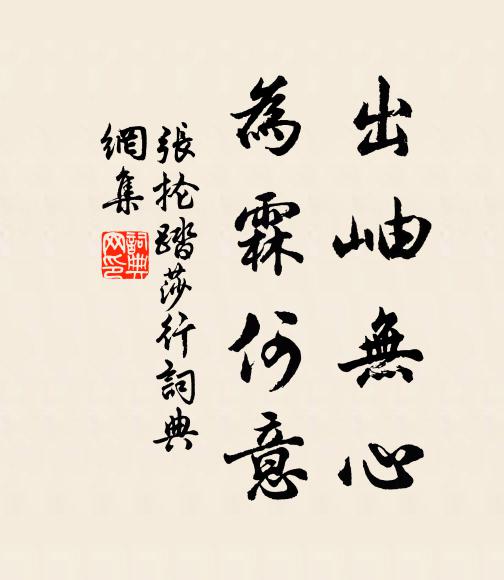 出岫無心
為霖何意
張掄踏莎行詞典
網集
詞典
網印